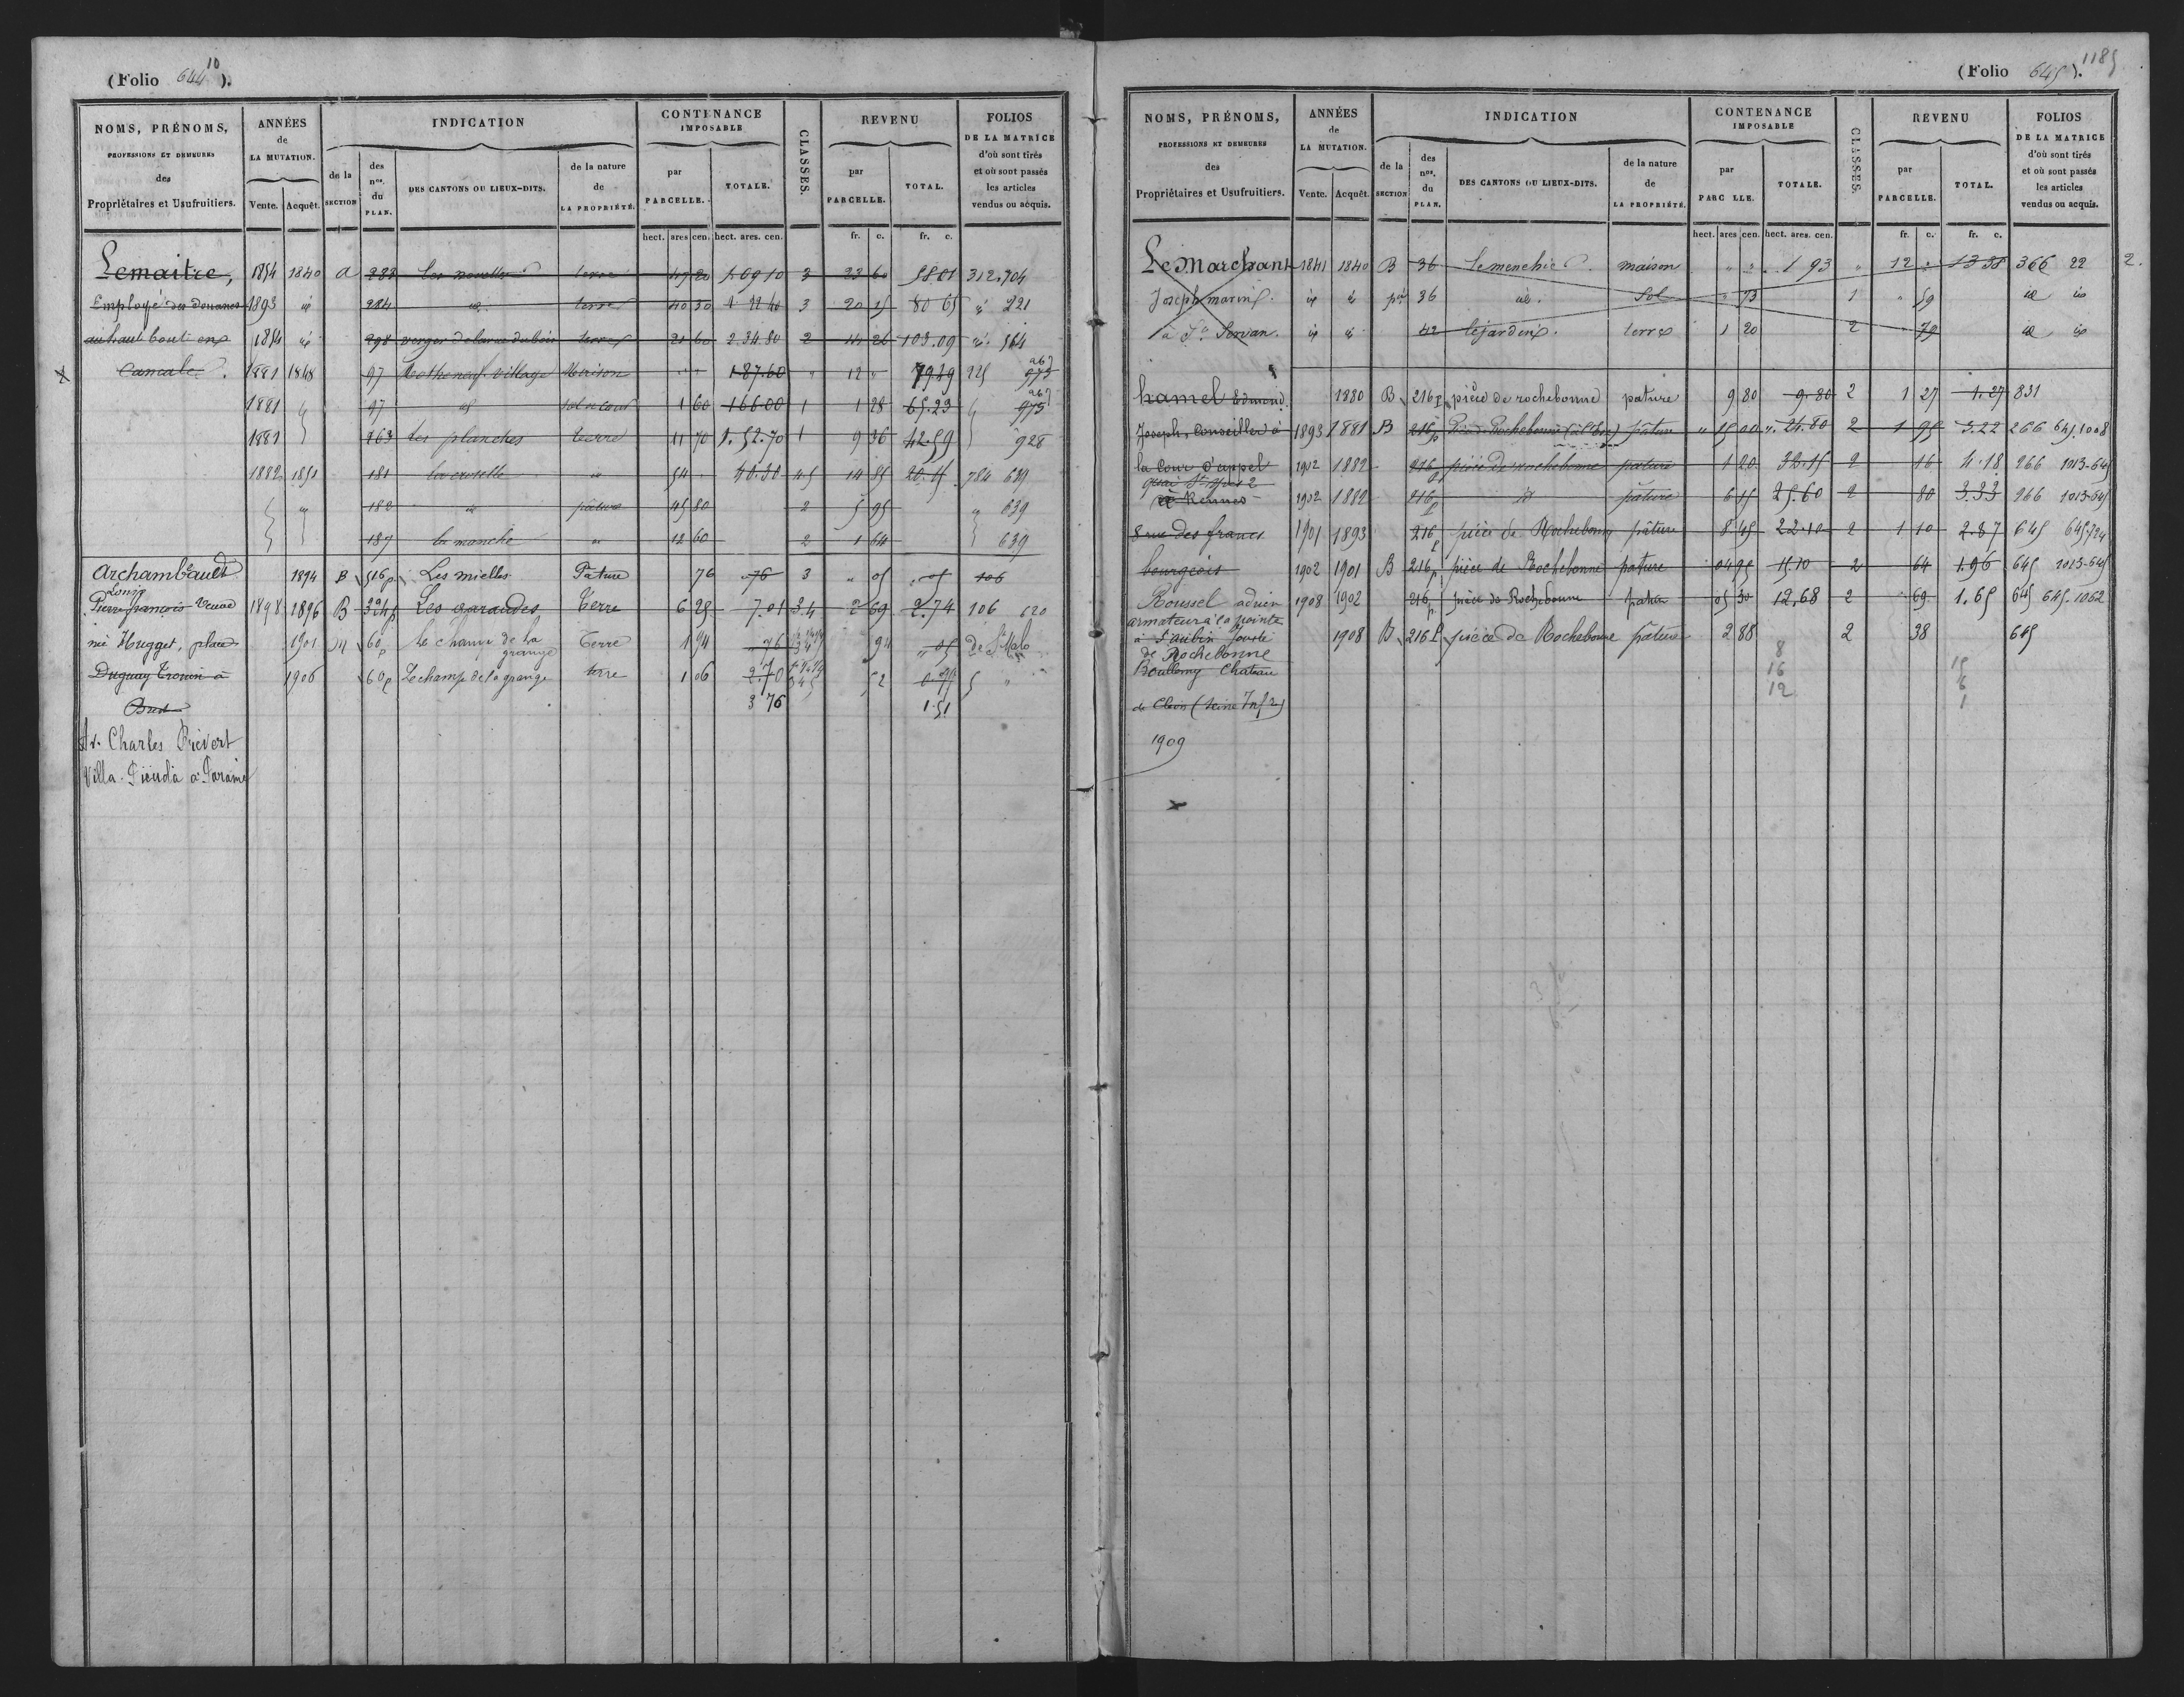 (Folio 644 10).
NOMS, PRÉNOMS, PROFESSIONS ET DEMEURES des Propriétaires et Usufruitiers.
ANNÉES de LA MUTATION. Vente. Acquêt.
INDICATION de la SECTION des nos. du PLAN. DES CANTONS OU LIEUX-DITS. de la nature de LA PROPRIÉTÉ.
CONTENANCE IMPOSABLE par PARCELLE. TOTALE.
CLASSES.
REVENU par PARCELLE. TOTAL.
FOLIOS DE LA MATRICE d'où sont tirés et où sont passés les articles vendus ou acquis.
hect. ares cen. hect. ares. cen. fr. c. fr. c.
Lemaitre, 1854 1840 a 283 terre 47 20 1 69 10 3 23 60 58 01 312. 704
Employé des douanes 1893 id 284 id terre 40 30 3 20 15 80 65 " 221
au haut bout en 1854 id 298 verger de la rue du bois terre 21 60 2.34.80 2 14 26 103.09 564
Cancale. 1881 1848 97 Rotheneuf village Maison " " 187.60 " 12 " 79 29 225 973 267
1881 97 id sol et cour 1 60 166.00 1 1 28 65.23 975 267
1881 263 les planches terre 11 70 1.52.70 1 9 36 42.59 928
1882 1851 181 la crotelle " 54 40.30 4 5 14 85 20.15 784 639
" 182 " pature 45 80 2 5 95 " 639
187 la manche " 12 60 2 1 64 639
Archambeault 1894 B 516p Les mielles Pature 76 " 76 3 " 05 " 05 106
Louis
Pierre françois Veuve 1898 1896 B 324p Les garaudes Terre 6 25 7.01 3.4 2 69 2.74 106 620
née Hugget, place 1901 60p Le champ de la grange Terre 1 94 " 76 94 " 05 de St Malo
Duguay Trouin à 1906 60p Le champ de la grange terre 1 06 2.70 52 0.99 "
Brest 3 76 1.51
Av. Charles Prévert
Villa
(Folio 645). 1185
NOMS, PRÉNOMS, PROFESSIONS ET DEMEURES des Propriétaires et Usufruitiers.
ANNÉES de LA MUTATION. Vente. Acquêt.
INDICATION de la SECTION des nos. du PLAN. DES CANTONS OU LIEUX-DITS. de la nature de LA PROPRIÉTÉ.
CONTENANCE IMPOSABLE par PARC LLE. TOTALE.
CLASSES.
REVENU par PARCELLE. TOTAL.
FOLIOS DE LA MATRICE d'où sont tirés et où sont passés les articles vendus ou acquis.
hect. ares cen. hect. ares. cen. fr. c. fr. c.
Le Marchant 1841 1840 B 36 Le menehic maison " " 1 93 " 12 " 13 38 366 22 2.
Joseph marin id id 36 id. Sol " 73 1 " 59 id id
à St Servan. id id 42 le jardin terre 1 20 2 79 id id
hamel Edmond 1880 B 216p pièce de rochebonne pature 9 80 9.80 2 1 27 1.27 831
Joseph, Conseiller à 1893 1881 B 216p pâture " 15 00 ". 24.80 2 1 95 3.22 266 645.1008
la Cour d'appel 1902 1882 216p pièce de rochebonne pature 1 20 32.15 2 16 4.18 266 1013-645
quai St Yves 2
à Rennes 1902 1882 216p id pâture 6 15 25.60 2 80 3.33 266 1013-645
8 rue des francs 1901 1893 216p pièce de Rochebonne pâture 8 45 22.10 2 1 10 2.87 645 645/724
bourgeois 1902 1901 B 216p pièce de Rochebonne pature 04 95 15 10 2 64 1.96 645 1013-645
Roussel adrien 1908 1902 216p pièce de Rochebonne pature 05 30 12,68 2 69 1.65 645 645.1062
armateur à la pointe
à St aubin 1908 B 216p pièce de Rochebonne pature 2 88 2 38 645
de Rochebonne 8
Boullemy Chateau 16 15
12 6
de Cleon (Seine Infre) 1
1909